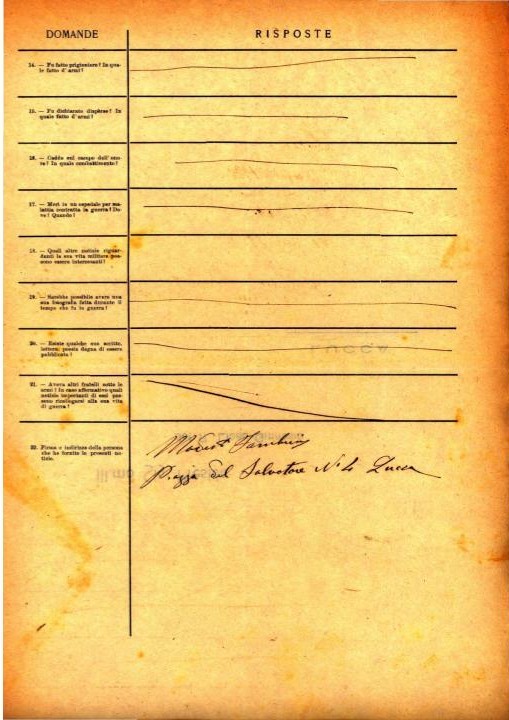 DOMANDE
RISPOSTE
14. — Fu fatto prigioniero? In qua-
le fatto d'armi?
15. — Fu dichiarato disperso? In
quale fatto d'armi?
16. — Cadde sul campo dell'ono-
re? In quale combattimento?
17. — Morì in un ospedale per ma-
lattia contratta in guerra? Do-
ve? Quando?
18. — Quali altre notizie riguar-
danti la sua vita militare pos-
sono essere interessanti?
19. — Sarebbe possibile avere una
sua fotografia fatta durante il
tempo che fu in guerra?
20. — Esiste qualche suo scritto,
lettera, poesia degna di essere
pubblicata?
21. — Aveva altri fratelli sotto le
armi? In caso affermativo quali
notizie importanti di essi pos-
sono ricollegarsi alla sua vita
di guerra?
22. Firma e indirizzo della persona
che ha fornito le presenti no-
tizie.
Piazza del Salvatore N° 4 Lucca